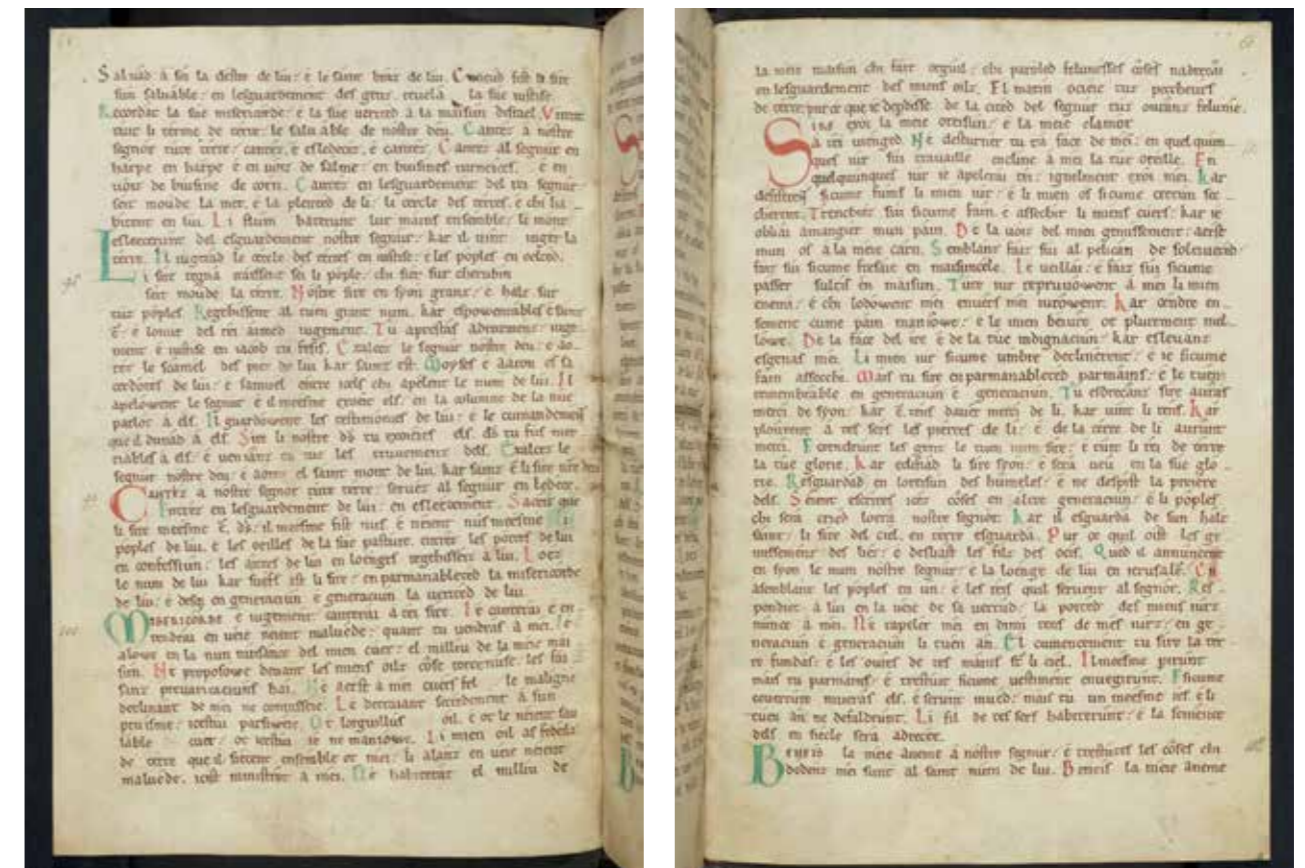 Saluad à sei la destre de lui: e le saint braz de lui. Cuneud fist li sire
sun saluable: en lesguardement des genz reuela la sue iustise.
Recordaz la sue misericorde: e la sue uerited à la maisun disrael. Uirent
tuit li terme de terre: le saluable de nostre deu. Cantez à nostre
segnor tute terre: cantez, e esledecez, e cantez. Cantez al segnur en
harpe en harpe e en uoiz de salme: en buisines turneices. e en
uoiz de buisine de corn. Cantez en lesguardement del rei segnur
seit moude la mer, e la plented de li: li cercle des terres, e chi ha
bitent en lui. Li flum baterunt lur mains ensemble: li munt
esleecerunt del esguardement nostre segnur: kar il uint iuger la
terre. Il iugerad le cercle des terres en iustise: e les poples en oelted.
Li sire regna iraissent sei li pople: chi siet sur cherubin
seit moude la terre. Nostre sire en syon granz: e halz sur
tuz poples. Regehissent al tuen grant num, kar espowentables e sainz
est: e lonur del rei aimed iugement. Tu aprestas adrecemenz: iuge
ment e iustise en iacob tu fesis. Exalcez le segnur nostre deu: e ao
rez le scamel des piez de lui kar sainz est. Moyses e aaron el sa
cerdotes de lui: e samuel entre icels chi apelent le num de lui. Il
apelowent le segnur e il meesme exoeit els. en la columne de la nue
parlot à els. Il guardowent les testimonies de lui: e le cumandement
que il dunad à els. Sire li nostre ds tu exoeies els. ds tu fus mer
ciables à els: e uenianz en tuz les truuemenz dels. Exalcez le
segnur nostre deu: e aorez el saint munt de lui, kar sainz est li sire nostre deu
Cantez a nostre segnor tute terre: seruez al segnur en ledece.
Entrez en lesguardement de lui: en esleecement. Sacez que
li sire meesme est ds: il meesme fist nus. e neient nus meesme
poples de lui. e les oeilles de la sue pasture. entrez les portes de lui
en confessiun: les aitres de lui en loenges regehissez à lui. Loez
le num de lui kar suefs est li sire: en parmanableted la misericorde
de lui: e desque en generaciun e generaciun la uerited de lui.
Misericorde e iugement canterai à tei sire. Je canterai e en
tendrai en ueie neient maluede: quant tu uendras à mei. Je
alowe en la nun nuisance del mien cuer: el milliu de la meie mai
sun. Ne proposowe deuant les miens oilz cose torcenuse: les fai
sanz preuaricaciuns hai. Ne aerst à mei cuers fel le maligne
declinant de mei ne conuisseie. Le detraiant secreiement à sun
pruisme: icestui parsiweie. Or lorguillus oil. e or le neient sau
lable cuer: or icestui ie ne maniowe. Li mien oil as fedeilz
de terre que il siecent ensemble or mei: li alanz en ueie neient
maluede, icist ministrot à mei. Ne habiterat el milliu de
la meie maisun chi fait orguil: chi paroled felunesses coses nadreçat
en lesguardement des miens oilz. El matin ocieie tuz pecheurs
de terre: pur ce que ie depdisse de la cited del segnur tuz ouranz felunie.
Sire exoi la meie oreisun: e la meie clamor
à tei uienged. Ne desturner tu ta face de mei: en quelquum
ques iur sui trauaillé encline à mei la tue oreille. En
quelqunques iur ie apelerai tei: ignelment exoi mei. Kar
defistrent sicume fums li mien iur: e li mien os sicume cretun se
cherent. Trenchiez sui sicume fain e assechit li miens cuers: kar ie
obliai amangier mun pain. De la uoiz del mien gemissement: aerst
mun os à la meie carn. Semblanz faiz sui al pelican de soltiued
faiz sui sicume fresaie en maisuncele. Je ueillai: e faiz sui sicume
passer sultis en maisun. Tute iur repruuowent à mei li mien
enemi: e chi lodowent mei enuers mei iurowent. Kar cendre en
sement cume pain maniowe: e le mien beiure ot plurement mel
lowe. De la face del ire e de la tue indignaciun: kar esleuanz
esgenas mei. Li mien iur sicume umbre declinerent: e ie sicume
fain assechi. Mais tu sire en parmanableted parmains: e le tuen
remembrable en generaciun e generaciun. Tu esdrecans sire auras
merci de syon: kar est tens dauer merci de li, kar uint li tens. Kar
plourent à tes sers les pierres de li: e de la terre de li aurunt
merci. E crendrunt les genz le tuen num sire: e tuit li rei de terre
la tue glorie. Kar edefiad li sire syon: e sera ueu en la sue glo
rie. Resguardad en loreisun des humeles: e ne despist la preiere
dels. Seient escrites icez coses en altre generaciun: e li poples
chi sera criez lorra nostre segnor. Kar il esguarda de sun halt
saint: li sire del ciel, en terre esguarda. Pur ce quil oist les ge
missemenz des liez: e desliast les filz des ocis. Qued il annuncent
en syon le num nostre segnur: e la loenge de lui en ierusalem. En
asemblant les poples en un: e les reis quil seruent al segnor. Res
pondiet à lui en la ueie de sa uertud: la poced des miens iurz
nuncie à mei. Ne rapeler mei en dimi tens de mes iurz: en ge
neraciun e generaciun li tuen an. El cumencement tu sire la ter
re fundas: e les oures de tes mains sunt li ciel. Il meesme perirunt
mais tu parmans: e trestuit sicume uestiment enuegirunt. E sicume
couerture mueras els e serunt mued: mais tu un meesme ies e li
tuen an ne defaldrunt. Li fil de tes sers habiterunt: e la semence
dels en siecle sera adrecee.
Beneis la meie aneme à nostre segnur: e trestutes les coses chi
dedenz mei sunt al saint num de lui. Beneis la meie aneme